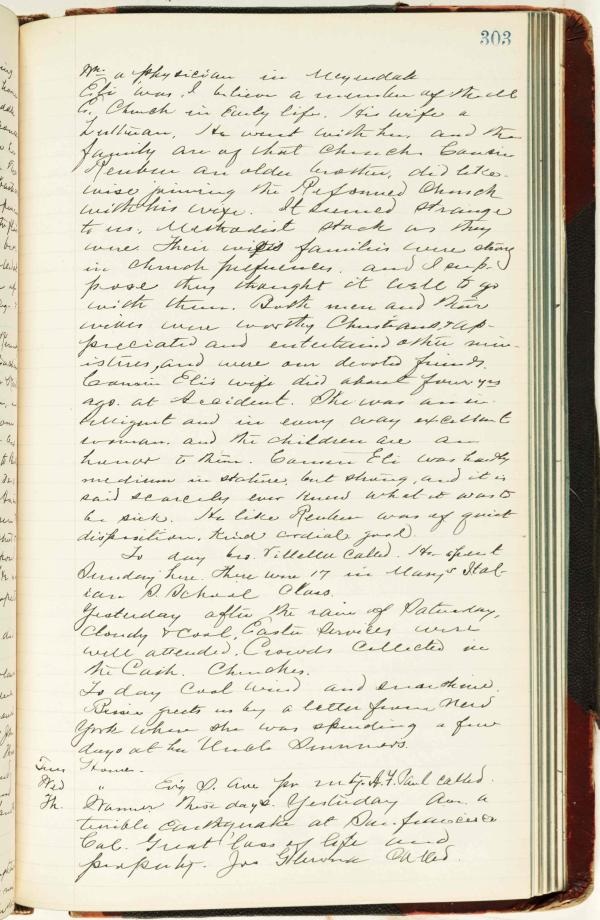 303
Wm. a physician in Meyersdale
Eli was, I believe a member of the M
E. Church in Early life. His wife a
Lutheran. He went with her, and the
family are of that Church. Cousin
Reuben an older brother, did like-
wise joining the Reformed Church
with his wife. It seemed strange
to us, Methodist stock as they
were. Their wifes families were strong
in church prefuences, and I sup-
pose they thought it well to go
with them. Both men and their
wives were worthy Christians, & ap-
preciated and entertained other min-
isters, and were our devoted friends.
Cousin Elis wife died about four yrs
ago. at Accident. She was an in-
telligent and in every way excellent
woman, and the children are an
honor to them. Cousin Eli was hardly
medium in stature, but strong, and it is
said scarcely ever knew what it was to
be sick. He like Reuben was of quiet
disposition, kind cordial good.
To day bro. Villelli called. He spent
Sunday here. There were 17 in Mary's Ital-
ian S. School Class.
Yesterday after the rain of Saturday,
Cloudy & Cool, Easter Services were
well attended. Crowds Collected in
the Cath. Churches.
To day Cool wind and sunshine.
Bessie greets us by a letter from New
York where she was spending a few
days at her Uncle Sumners.
Tues Home.
Wed " Ev'g S. Ave pr mtg. H. F. Paul called.
Th. Warmer these days. Yesterday Am. a
terrible Earthquake at San francisco
Cal. Great loss of life and
property. Jos called.